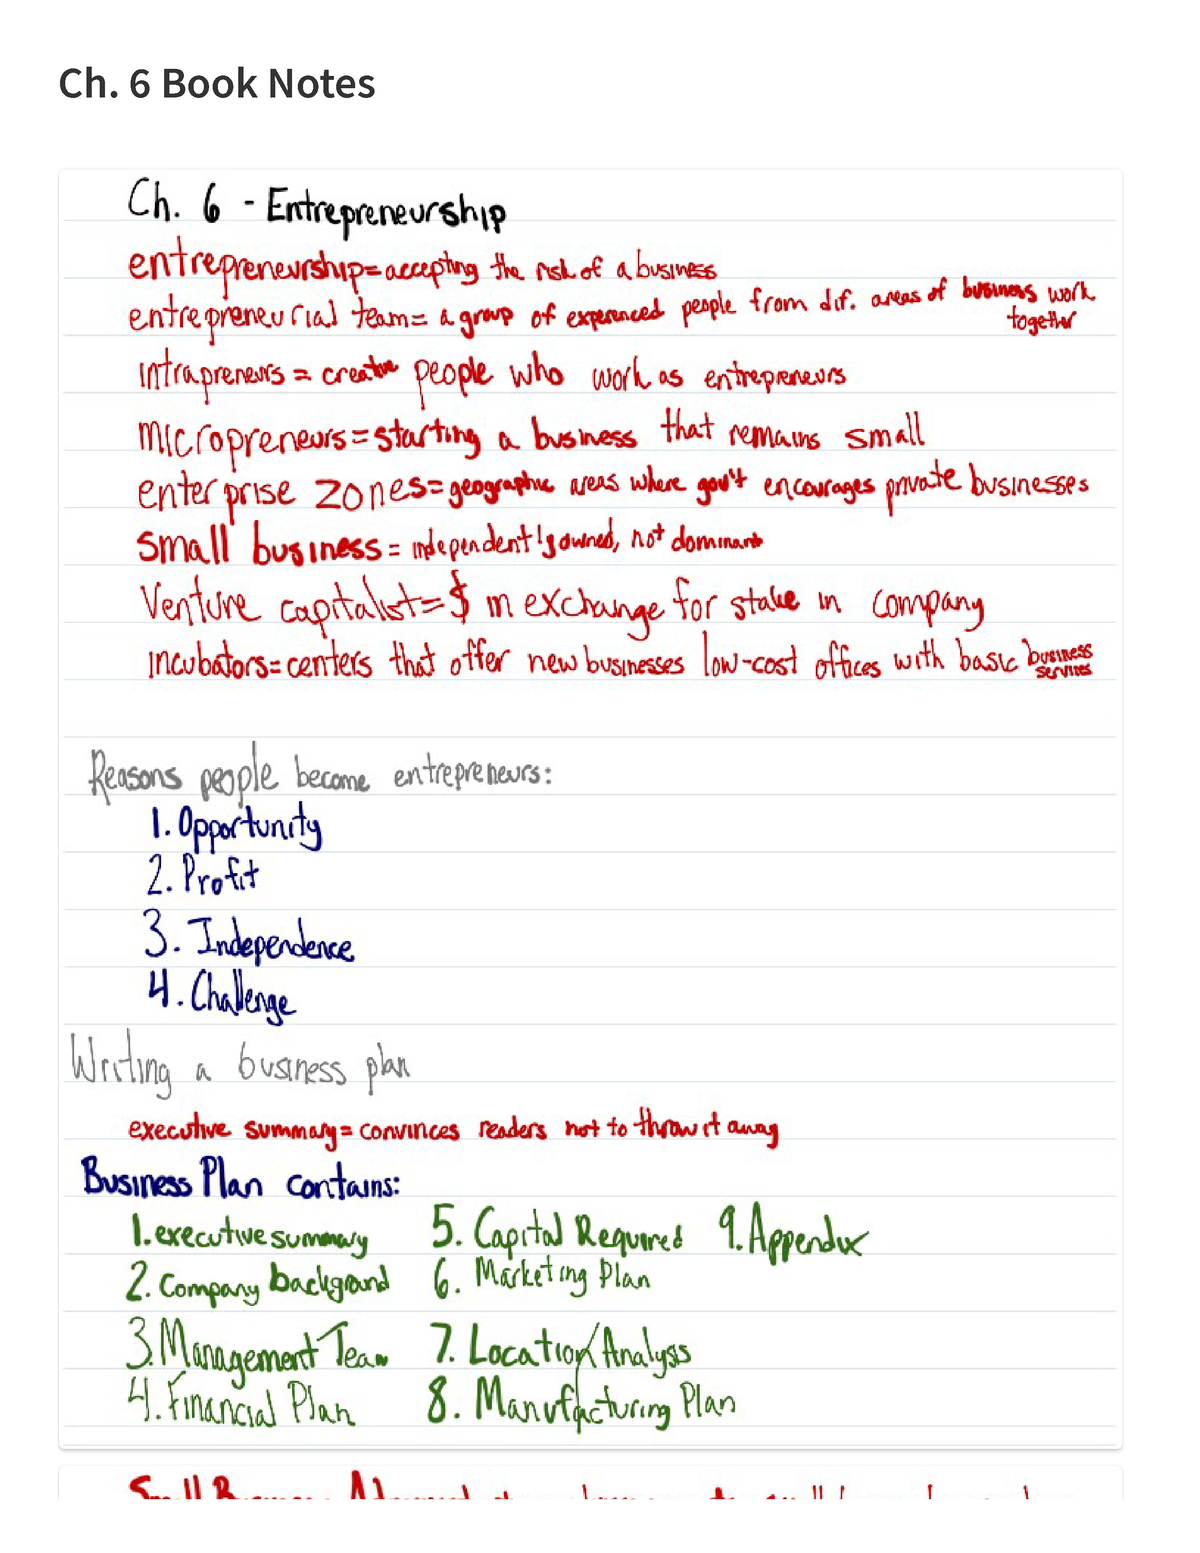 Ch. 6 Book Notes
Ch. 6 - Entrepreneurship
entrepreneurship=accepting the risk of a business
entrepreneurial team= a group of experienced people from dif. areas of business work together
intrapreneurs = creative people who work as entrepreneurs
micropreneurs=starting a business that remains small
enterprise zones=geographic areas where gov't encourages private businesses
small business= independently owned, not dominant
Venture capitalist=$ in exchange for stake in company
incubators=centers that offer new businesses low-cost offices with basic business services
Reasons people become entrepreneurs:
1. Opportunity
2. Profit
3. Independence
4. Challenge
Writing a business plan
executive summary= convinces readers not to throw it away
Business Plan contains:
1. executive summary 5. Capital Required 9. Appendix
2. Company background 6. Marketing Plan
3. Management Team 7. Location/Analysis
4. Financial Plan 8. Manufacturing Plan